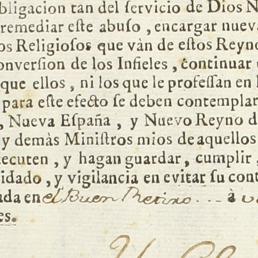 bligacion tan del servicio de Dios N
remediar este abuso, encargar nueva
os Religiosos que vàn de estos Reyno
onversion de los Infieles, continuar
que ellos, ni los que professan en l
para este efecto se deben contemplar
, Nueva España, y Nuevo Reyno d
y demàs Ministros mios de aquellos
ecuten, y hagan guardar, cumplir,
idado, y vigilancia en evitar su cont
ada en el Buen Retiro... à
es.